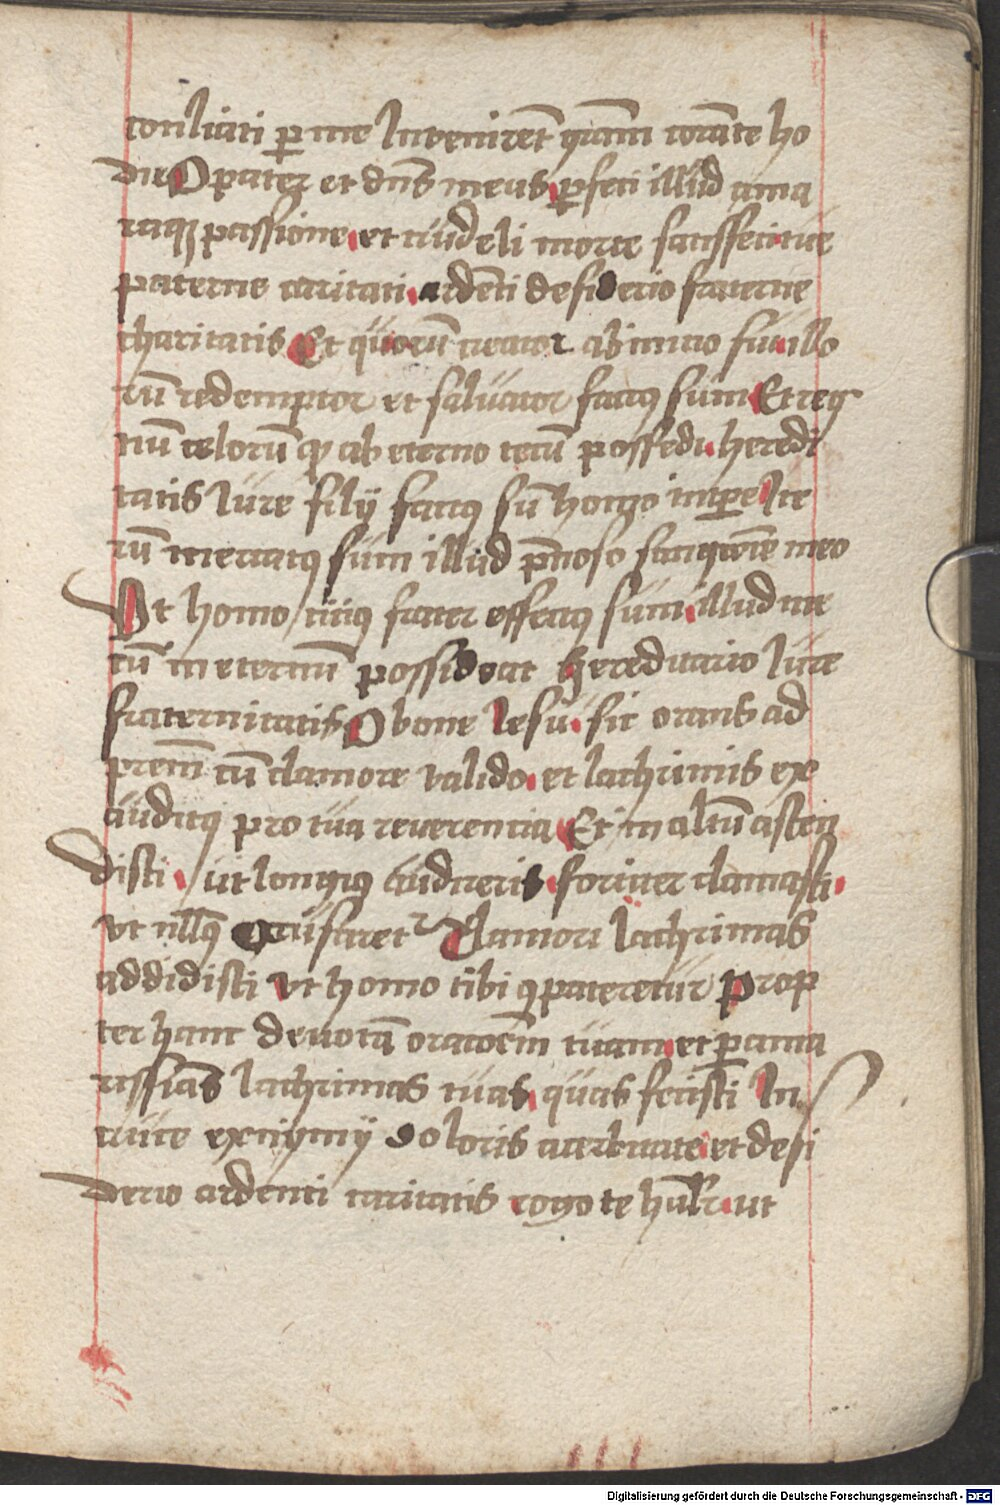 conliati p̱ me Inveniret̄ grām̄ corāte ho
die O pater et dn̄s meus p̱feci illud ama
raq₃ passione et crudeli morte satisfeci tue
paterne caritati ardēti desiderio fraterne
charitatis Et quorū creator ab inicio fui illo
rū redemptor et salvator factꝰ sum Et reg
nū celorū qd̄ ab eterno tecū possedi heredi
tatis Iure filij factꝰ sū homo inope Ite
rū mercatꝰ sum illud p̄cioso sanguīe meo
Vt homo cuiꝰ frater effectꝰ sum illud me
cū in eternū possideat hereditario Iure
fraternitatis O bone Iesu sic orans ad
prem̄ cū clamore valido et lachrimis ex
auditꝰ pro tua reverencia Et in altū ascen
disti ut longiꝰ audireris fortiter clamasti
vt nullꝰ excusaret² Clamori lachrimas
addidisti vt homo tibi cōpateretur prop
ter hanc devotā oracōem̄ tuam et p̱ ama
rissiās lachrimas tuas quas fecisti In
cruce eximij doloris acerbitate et desi
derio ardenti caritatis rogo te hūlr̄ ut
Digitalisierung gefördert durch die Deutsche Forschungsgemeinschaft - DFG